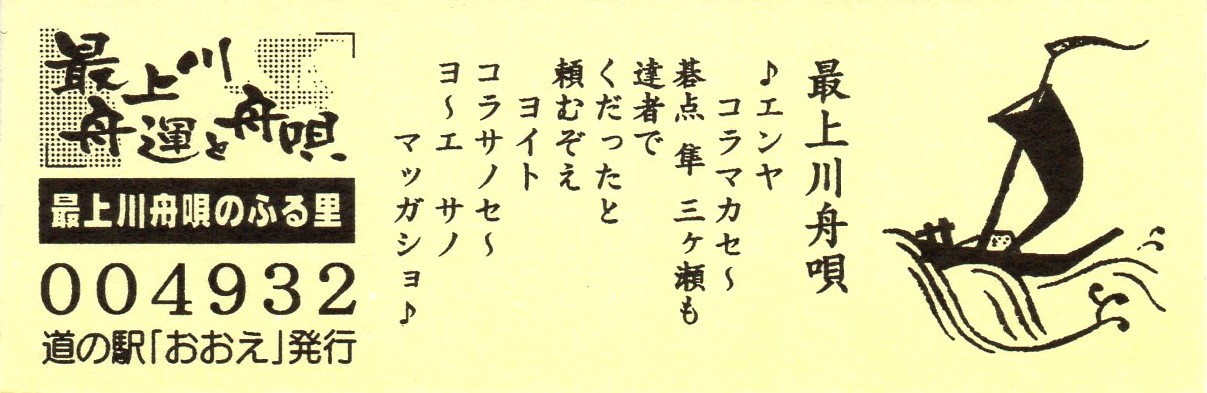 最上川舟唄
♪エンヤ
コラマカセ～
碁点 隼 三ヶ瀬も
達者で
くだったと
頼むぞえ
ヨイト
コラサノセ～
ヨ～エ サノ
マッガショ♪
最上川
舟運と舟唄
最上川舟唄のふる里
004932
道の駅「おおえ」発行